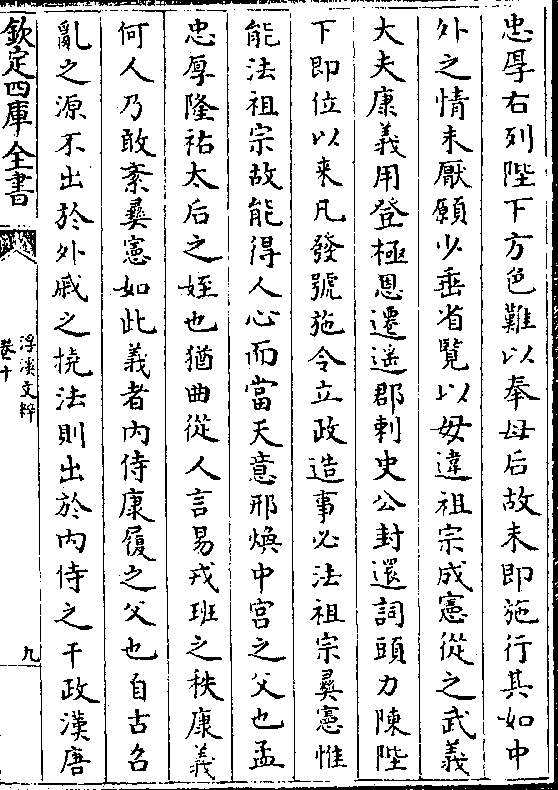 忠厚右列陛下方色難以奉母后故未即施行其如中
外之情未厭願少垂省覽以毋違祖宗成憲從之武義
大夫康義用登極恩遷遥郡刺史公封還詞頭力陳陛
下即位以来凡發號施令立政造事必法祖宗彛憲惟
能法祖宗故能得人心而當天意邢煥中宫之父也孟
忠厚隆祐太后之姪也猶曲從人言易戎班之秩康義
何人乃敢紊彛憲如此義者内侍康履之父也自古召
亂之源不出於外戚之撓法則出於内侍之干政漢唐
欽定四庫全書
浮溪文粹
卷十
九